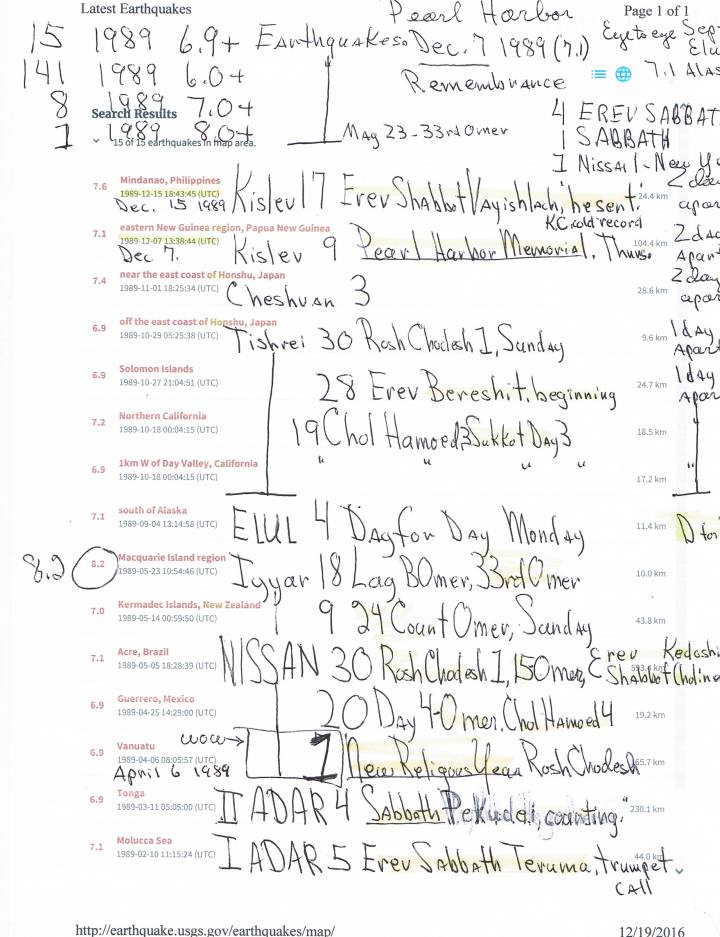 Latest Earthquakes Pearl Harbor Page 1 of 1
15 1989 6.9+ Earthquakes. Dec. 7 1989 (7.1) Eye to eye Sep
141 1989 6.0+ Remembrance 7.1 Alas
8 1989 7.0+ 4 EREV SABBAT
Search Results
1 1989 8.0+ May 23-33rd Omer 1 SABBATH
15 of 15 earthquakes in map area.
1 Nissan 1-New Ye
7.6 Mindanao, Philippines
1989-12-15 18:43:45 (UTC) Kislev 17 Erev Shabbat Vayishlach, "he sent." 24.4 km 2 apar
Dec. 15 1989 KC cold record
7.1 eastern New Guinea region, Papua New Guinea
1989-12-07 13:38:44 (UTC) Kislev 9 Pearl Harbor Memorial, Thurs. 104.4 km 2 day Apart
Dec 7.
7.4 near the east coast of Honshu, Japan
1989-11-01 18:25:34 (UTC) Cheshvan 3 28.6 km 2 day apar
6.9 off the east coast of Honshu, Japan
1989-10-29 05:25:38 (UTC) Tishrei 30 Rosh Chodesh 1, Sunday 9.6 km 1 day Apart
6.9 Solomon Islands
1989-10-27 21:04:51 (UTC) 28 Erev Bereshit, beginning 24.7 km 1 day Apar
7.2 Northern California
1989-10-18 00:04:15 (UTC) 19 Chol Hamoed 3 Sukkot Day 3 18.5 km
6.9 1km W of Day Valley, California
1989-10-18 00:04:15 (UTC) " " " " 17.2 km "
7.1 south of Alaska
1989-09-04 13:14:58 (UTC) ELUL 4 Day for Day Monday 11.4 km D for
8.2 8.2 Macquarie Island region
1989-05-23 10:54:46 (UTC) Iyyar 18 Lag BOmer, 33rd Omer 10.0 km
7.0 Kermadec Islands, New Zealand
1989-05-14 00:59:50 (UTC) 9 24 Count Omer, Sunday 43.8 km
7.1 Acre, Brazil
1989-05-05 18:28:39 (UTC) NISSAN 30 Rosh Chodesh 1, 15 Omer, Erev Kedoshi Shabbat 593.4 km
6.9 Guerrero, Mexico
1989-04-25 14:29:00 (UTC) 20 Day 4-Omer. Chol Hamoed 4 19.2 km
wow
6.9 Vanuatu
1989-04-06 08:05:57 (UTC) 1 New Religous Year Rosh Chodesh
April 6 1989
6.9 Tonga
1989-03-11 05:05:00 (UTC) II ADAR 4 Sabbath Pekudei, counting." 230.1 km
7.1 Molucca Sea
1989-02-10 11:15:24 (UTC) I ADAR 5 Erev Sabbath Teruma, trumpet 44.0 km
call
http://earthquake.usgs.gov/earthquakes/map/ 12/19/2016